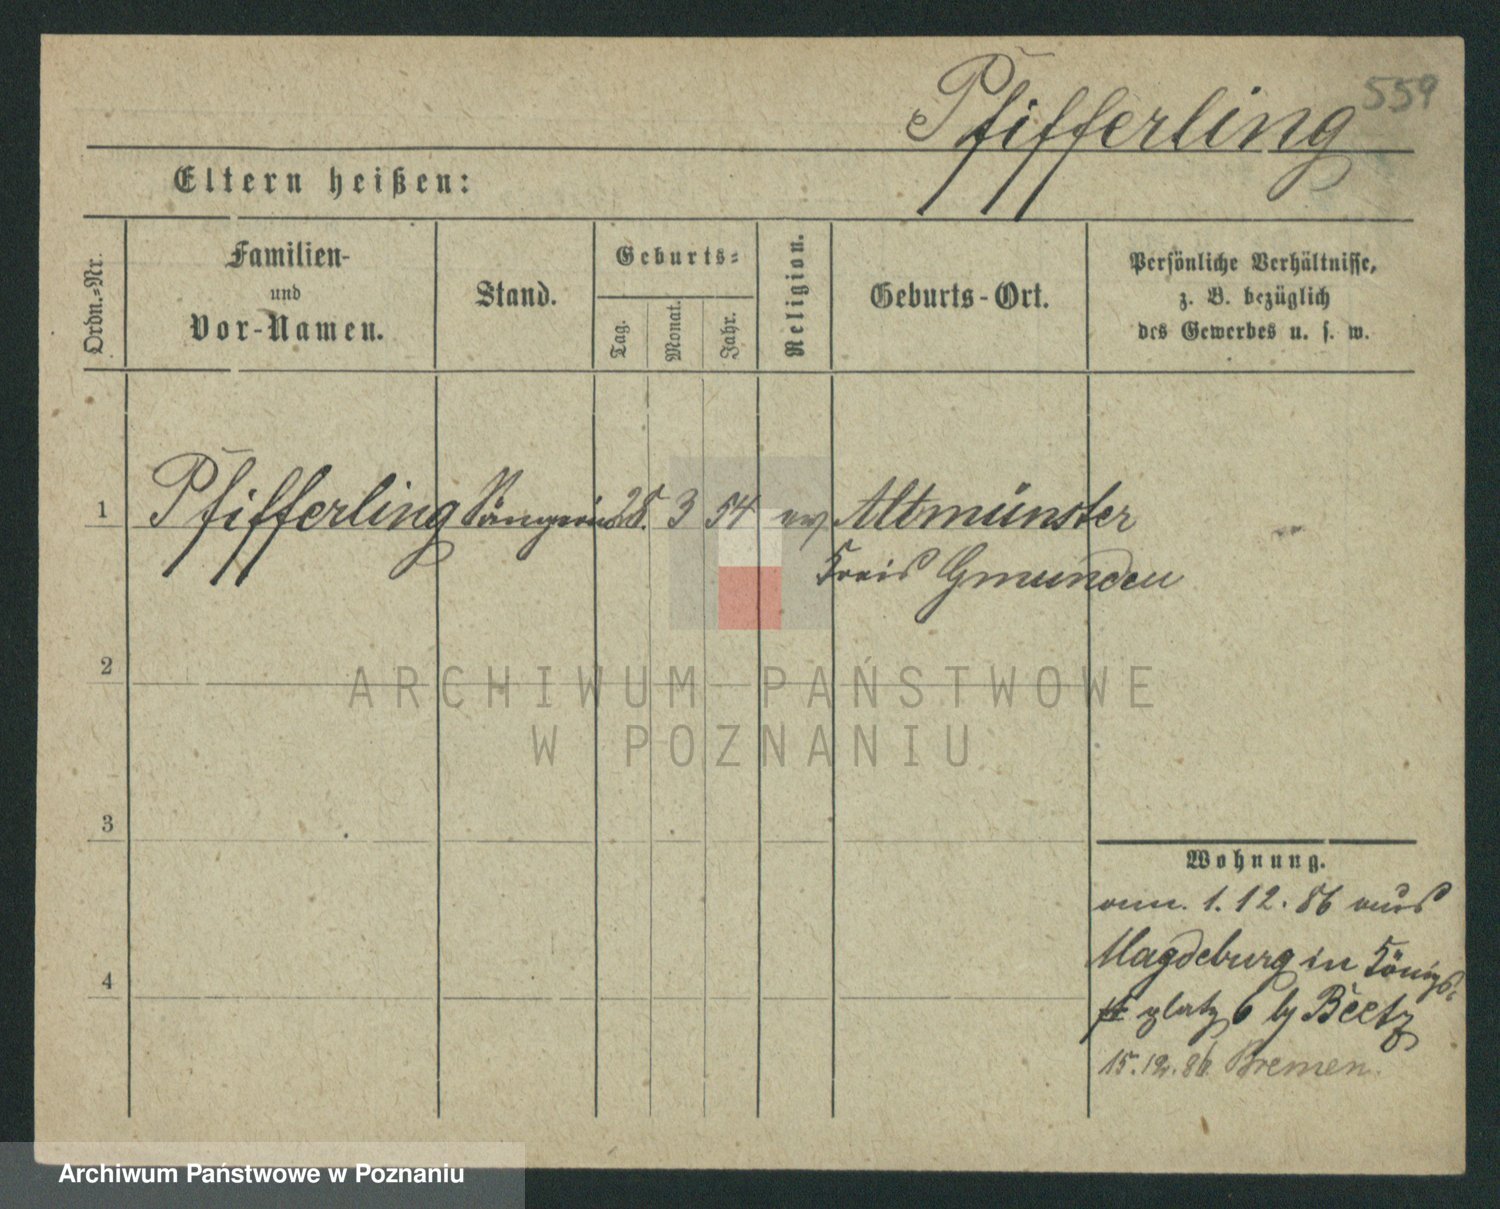 559
Pfifferling
Eltern heißen:
Ordn.-Nr.
Familien-
und
Vor-Namen.
Stand.
Geburts-
Tag.
Monat.
Jahr.
Religion.
Geburts-Ort.
Persönliche Verhältnisse,
z. B. bezüglich
des Gewerbes u. s. w.
1 Pfifferling Sängerin 25. 3 54 ev Altmünster
Kreis Gmunden
2
ARCHIWUM PAŃSTWOWE
W POZNANIU
3
Wohnung.
1.12.86 aus
Magdeburg in Königs-
platz 6 by Beetz
4
15.12.86 Bremen.
Archiwum Państwowe w Poznaniu